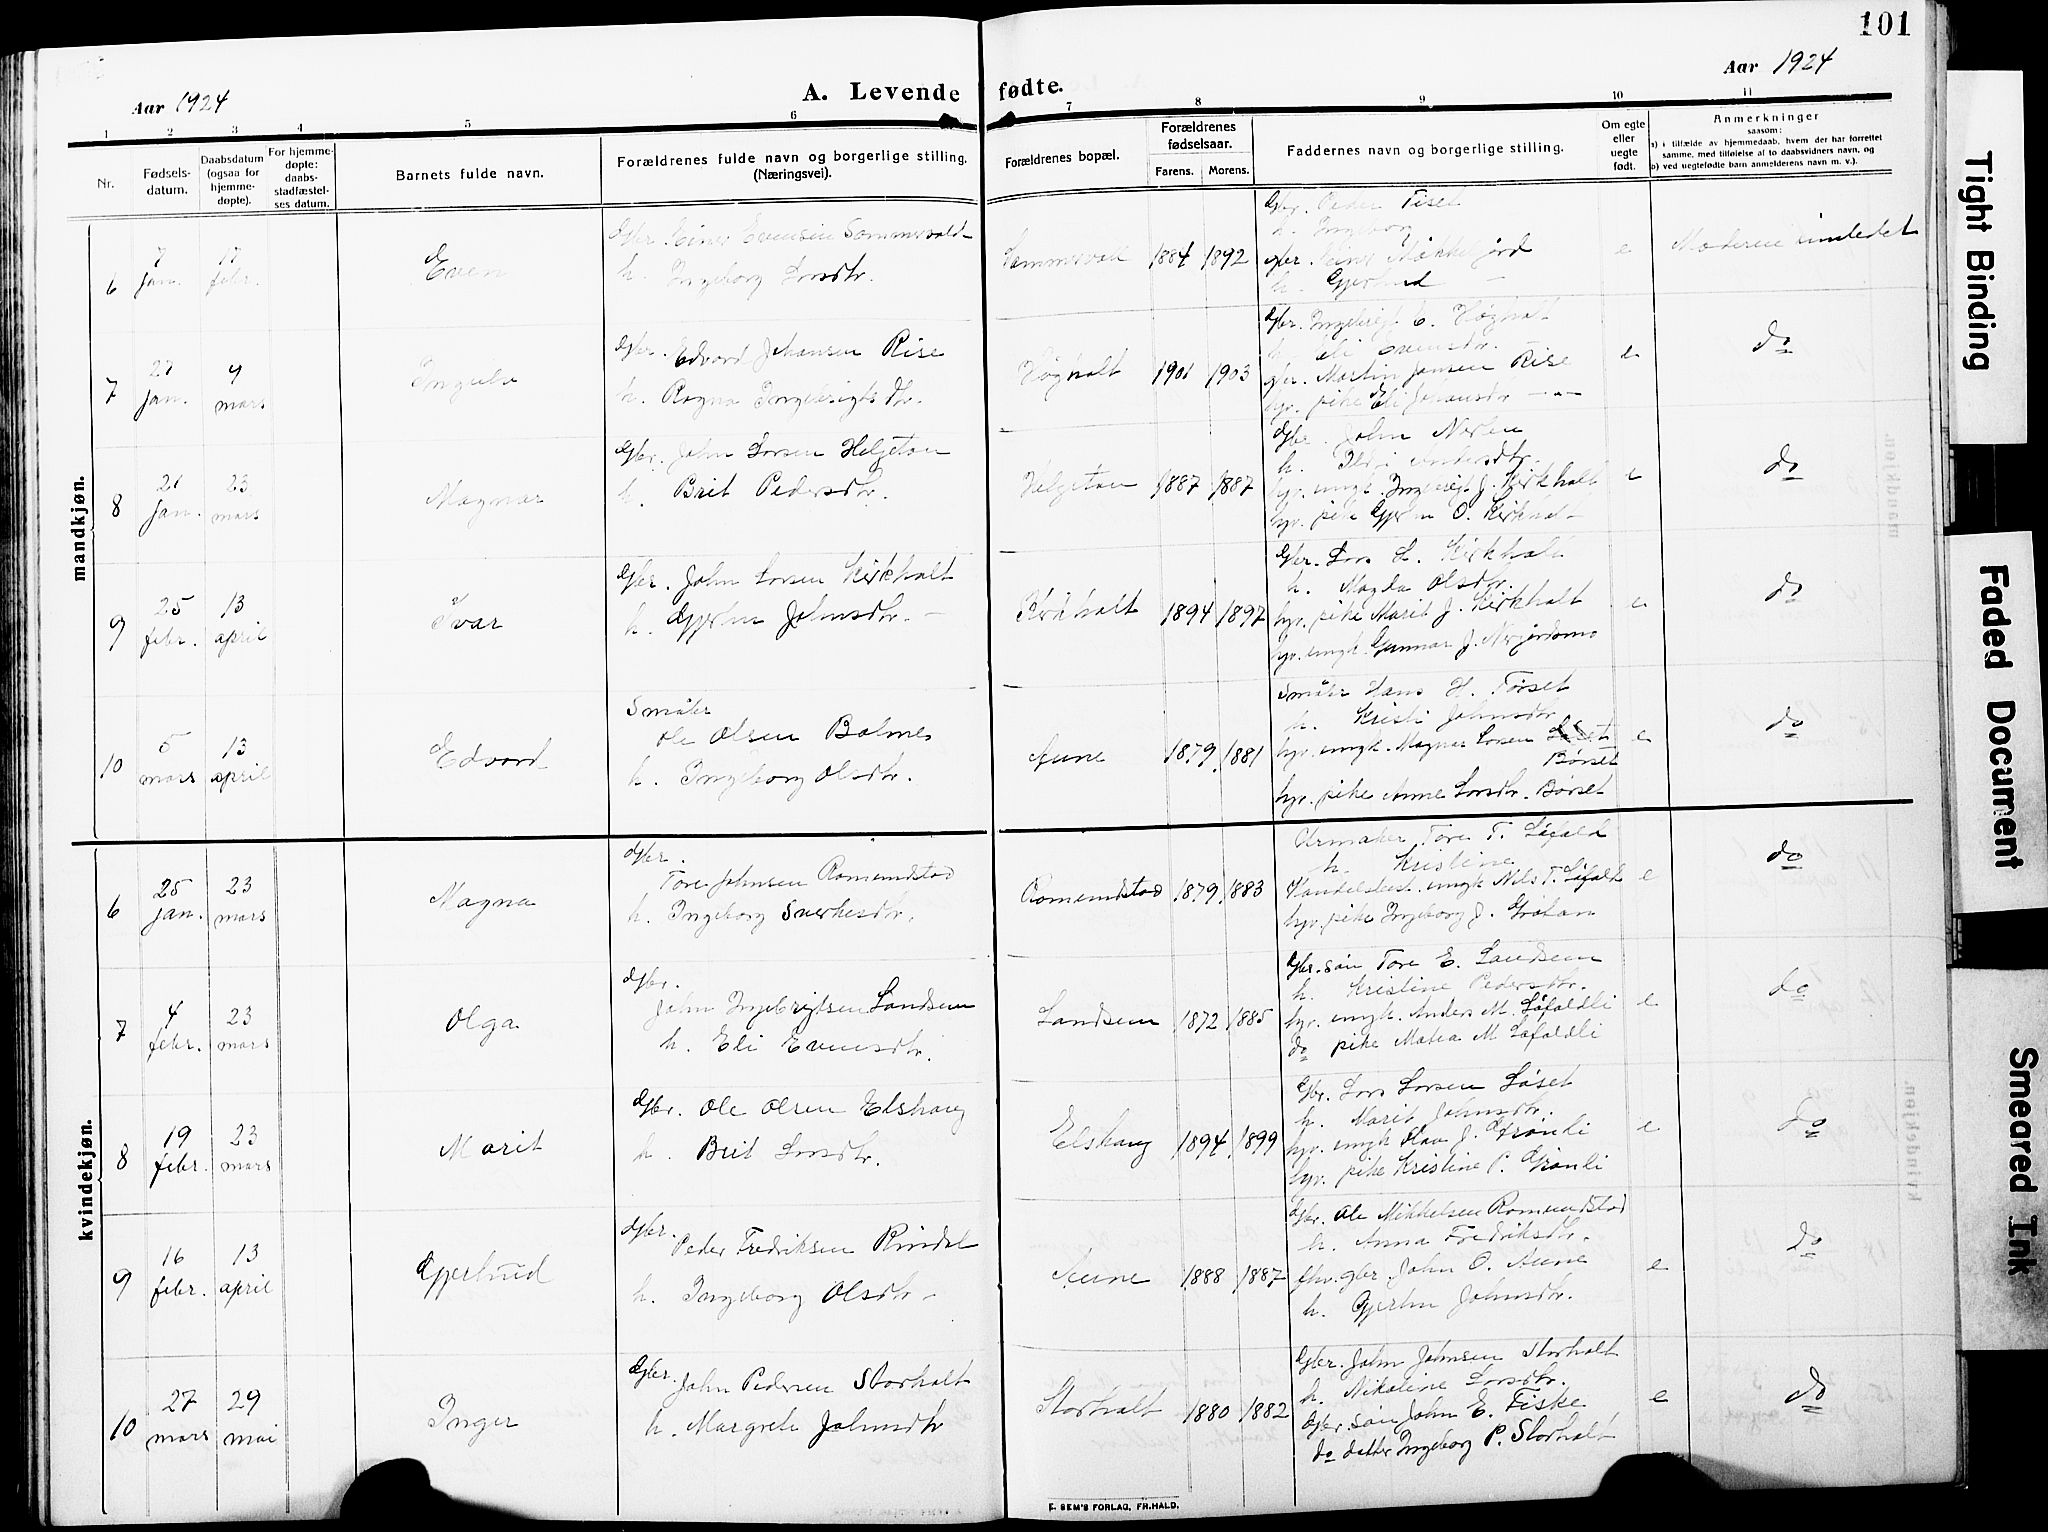 101
Aar 1924
A. Levende fødte.
Aar 1924
1 2 3 4 5 6 7 8 9 10 11
Nr.
Fødsels-
datum.
Daabsdatum
(ogsaa for
hjemme-
døpte).
For hjemme-
døpte:
daabs-
stadfæstel-
ses datum.
Barnets fulde navn.
Forældrenes fulde navn og borgerlige stilling.
(Næringsvei).
Forældrenes bopæl.
Forældrenes
fødselsaar.
Farens. Morens.
Faddernes navn og borgerlige stilling.
Om egte
eller
uegte
født.
Anmerkninger
saasom:
a) i tilfælde av hjemmedaab, hvem der har forrettet
samme, med tilføielse af to daabsvidners navn, og
b) ved uegtefødte barn anmelderens navn m. v.).
mandkjøn.
6
7 jan.
17 febr.
Even
Gbr. Einar Evensen Sommervold
h. Ingeborg Larsdtr.
Sommervold
1884 1892
Gbr. Peder Fiset
h. Ingeborg
gbr. Einar
h. Gjertrud
e
Moderen innledet
7
27 jan.
9 mars
Gbr. Edvard Johansen Rise
h. Ragna Ingebrigtsdtr.
Høghalt
1901 1903
Gbr. Ingebrigt E. Høghalt
h. Eli Evensdtr.
gbr. Martin Jansen Rise
hjv. pike Eli Johansdtr —"—
e
do
8
21 jan.
23 mars
Magnar
Gbr. John Larsen Helgetun
h. Brit Pedersdtr.
Helgetun
1887 1887
Gbr. John
h. Ildri Andersdtr.
hjv. ungk. Ingebrigt J. Kirkhalt
hjv. pike Gjertru O. Kirkhalt
e
do
9
25 febr.
13 april
Ivar
Gbr. John Larsen Kirkhalt
h. Gjertru Johnsdtr.
Kirkhalt
1894 1897
Gbr. Lars L. Kirkhalt
h. Magda Olsdtr.
hjv. pike Marit J. Kirkhalt
hjv. ungk. Gunnar J. Nergårdsmo
e
do
10
5 mars
13 april
Edvard
Småbr
Ole Olsen Bolmes
h. Ingeborg Olsdtr.
Aune
1879 1881
Småbr Hans H. Tørset
h. Kristi Johnsdtr
hjv. ungk. Magnar Larsen
Børset
hjv. pike Anne Larsdtr. Børset
e
do
kvindekjøn.
6
25 jan.
23 mars
Magna
Gbr.
Tore Johnsen Romundstad
h. Ingeborg Sverkesdtr.
Romundstad
1879 1883
Urmaker Tore T. Løfald
h. Kristine
Handelsbest. ungk Nils T. Løfald
hjv. pike Ingeborg J. Grötan
e
do
7
4 febr.
23 mars
Olga
Gbr.
John Ingebrigtsen Landsem
h. Eli Evensdtr.
Landsem
1872 1885
Gbr. søn Tore E. Landsem
h. Kristine Pedersdtr.
hjv. ungk. Anders M. Løfaldli
do pike Matea M Løfaldli
e
do
8
19 febr.
23 mars
Marit
Gbr. Ole Olsen Elshaug
h. Brit Larsdtr.
Elshaug
1894 1899
Gbr. Lars Larsen Løset
h. Marit Johnsdtr.
hjv. ungk Olav J. Grönli
hjv. pike Kristine P. Grönli
e
do
9
16 febr.
13 april
Gjertrud
Gbr.
Peder Fredriksen Rindal
h. Ingeborg Olsdtr
Aune
1888 1887
Gbr. Ole Mikkelsen Romundstad
h. Anna Fredriksdtr.
fhv. gbr John O. Aune
h. Gjertru Johnsdtr.
e
do
10
27 mars
29 mai
Inger
Gbr. John Pedersen Storholt
h. Margrete Johnsdtr
Storholt
1880 1882
Gbr. John Johnsen Storholt
h. Nikoline Larsdtr.
Gbr. søn John E. Fiske
do datter Ingeborg P. Storholt
e
do
E. SEM'S FORLAG, FR.HALD.
Tight Binding
Faded Document
Smeared Ink